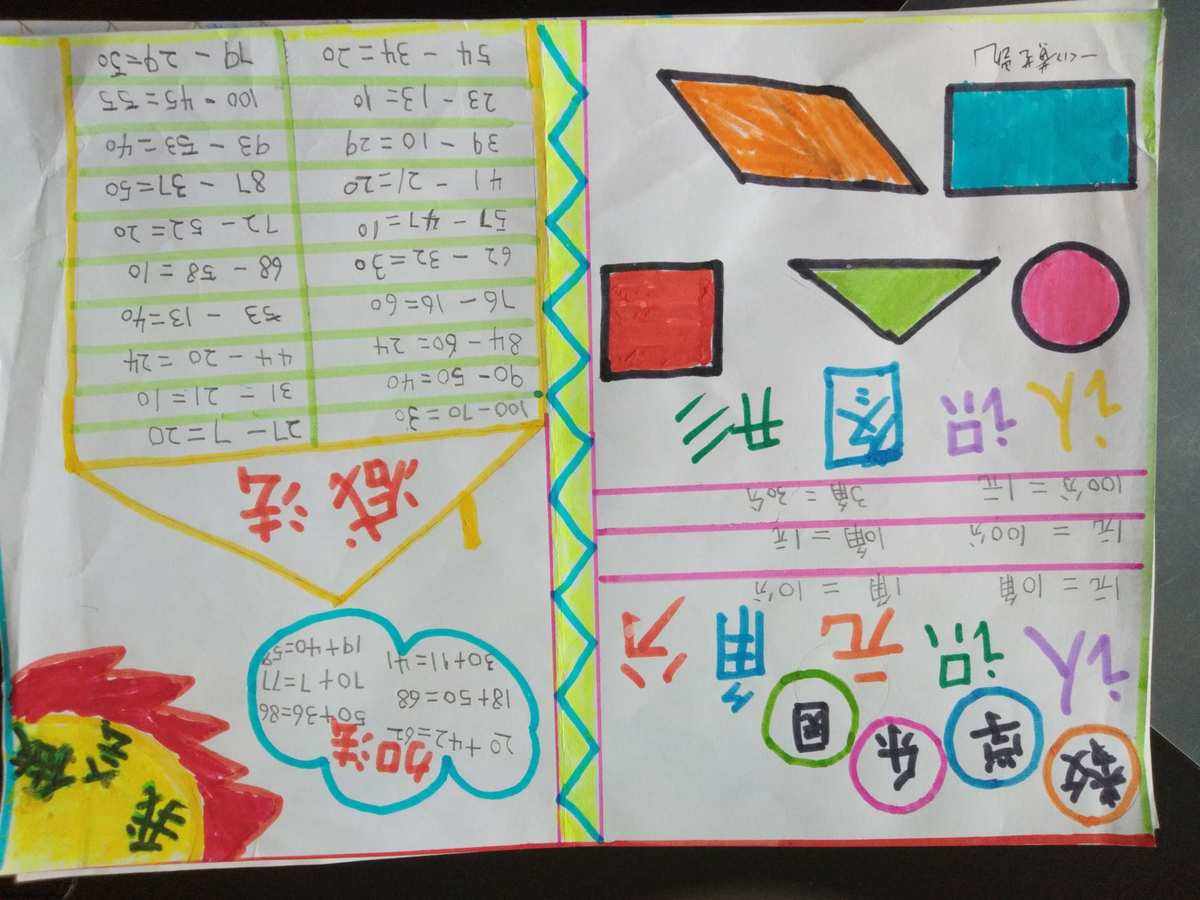 数学乐园
认识元角分
1元 = 10角 1角 = 10分
1元 = 100分 10角 = 1元
100分 = 1元 3角 = 30分
认识图形
加法
20+42=62 50+36=86
18+50=68 70+7=77
30+11=41 19+40=59
减法
100-70=30 27-7=20
90-50=40 31=21=10
84-60=24 44-20=24
76-16=60 53-13=40
62-32=30 68-58=10
57-47=10 72-52=20
41-21=20 87-37=50
39-10=29 93-53=40
23-13=10 100-45=55
54-34=20 79-29=50